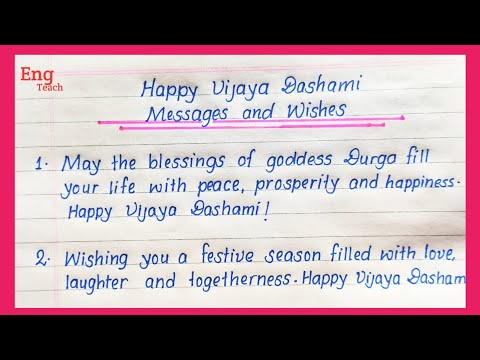 Eng
Teach
Happy Vijaya Dashami
Messages and Wishes
1. May the blessings of goddess Durga fill
your life with peace, prosperity and happiness.
Happy Vijaya Dashami!
2. Wishing you a festive season filled with love,
laughter and togetherness. Happy Vijaya Dasham